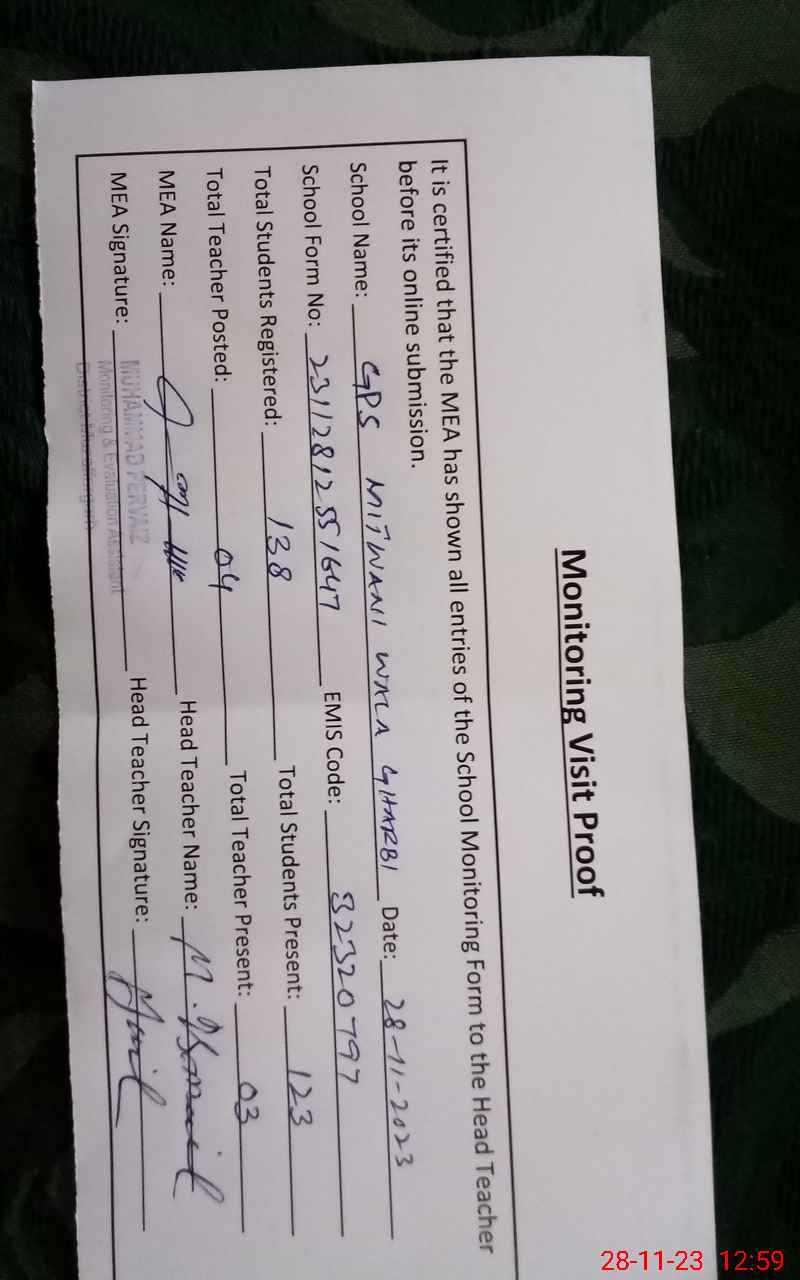 Monitoring Visit Proof
It is certified that the MEA has shown all entries of the School Monitoring Form to the Head Teacher
before its online submission.
School Name: GPS MITWANI WALA GHARBI Date: 28-11-2023
School Form No: 231128125551647 EMIS Code: 32320797
Total Students Registered: 138 Total Students Present: 123
Total Teacher Posted: 04 Total Teacher Present: 03
MEA Name: Head Teacher Name: M.
MEA Signature: Head Teacher Signature:
MUHAMMAD PERVAIZ
Monitoring & Evaluation Assistant
District Muzaffargarh
28-11-23 12:59